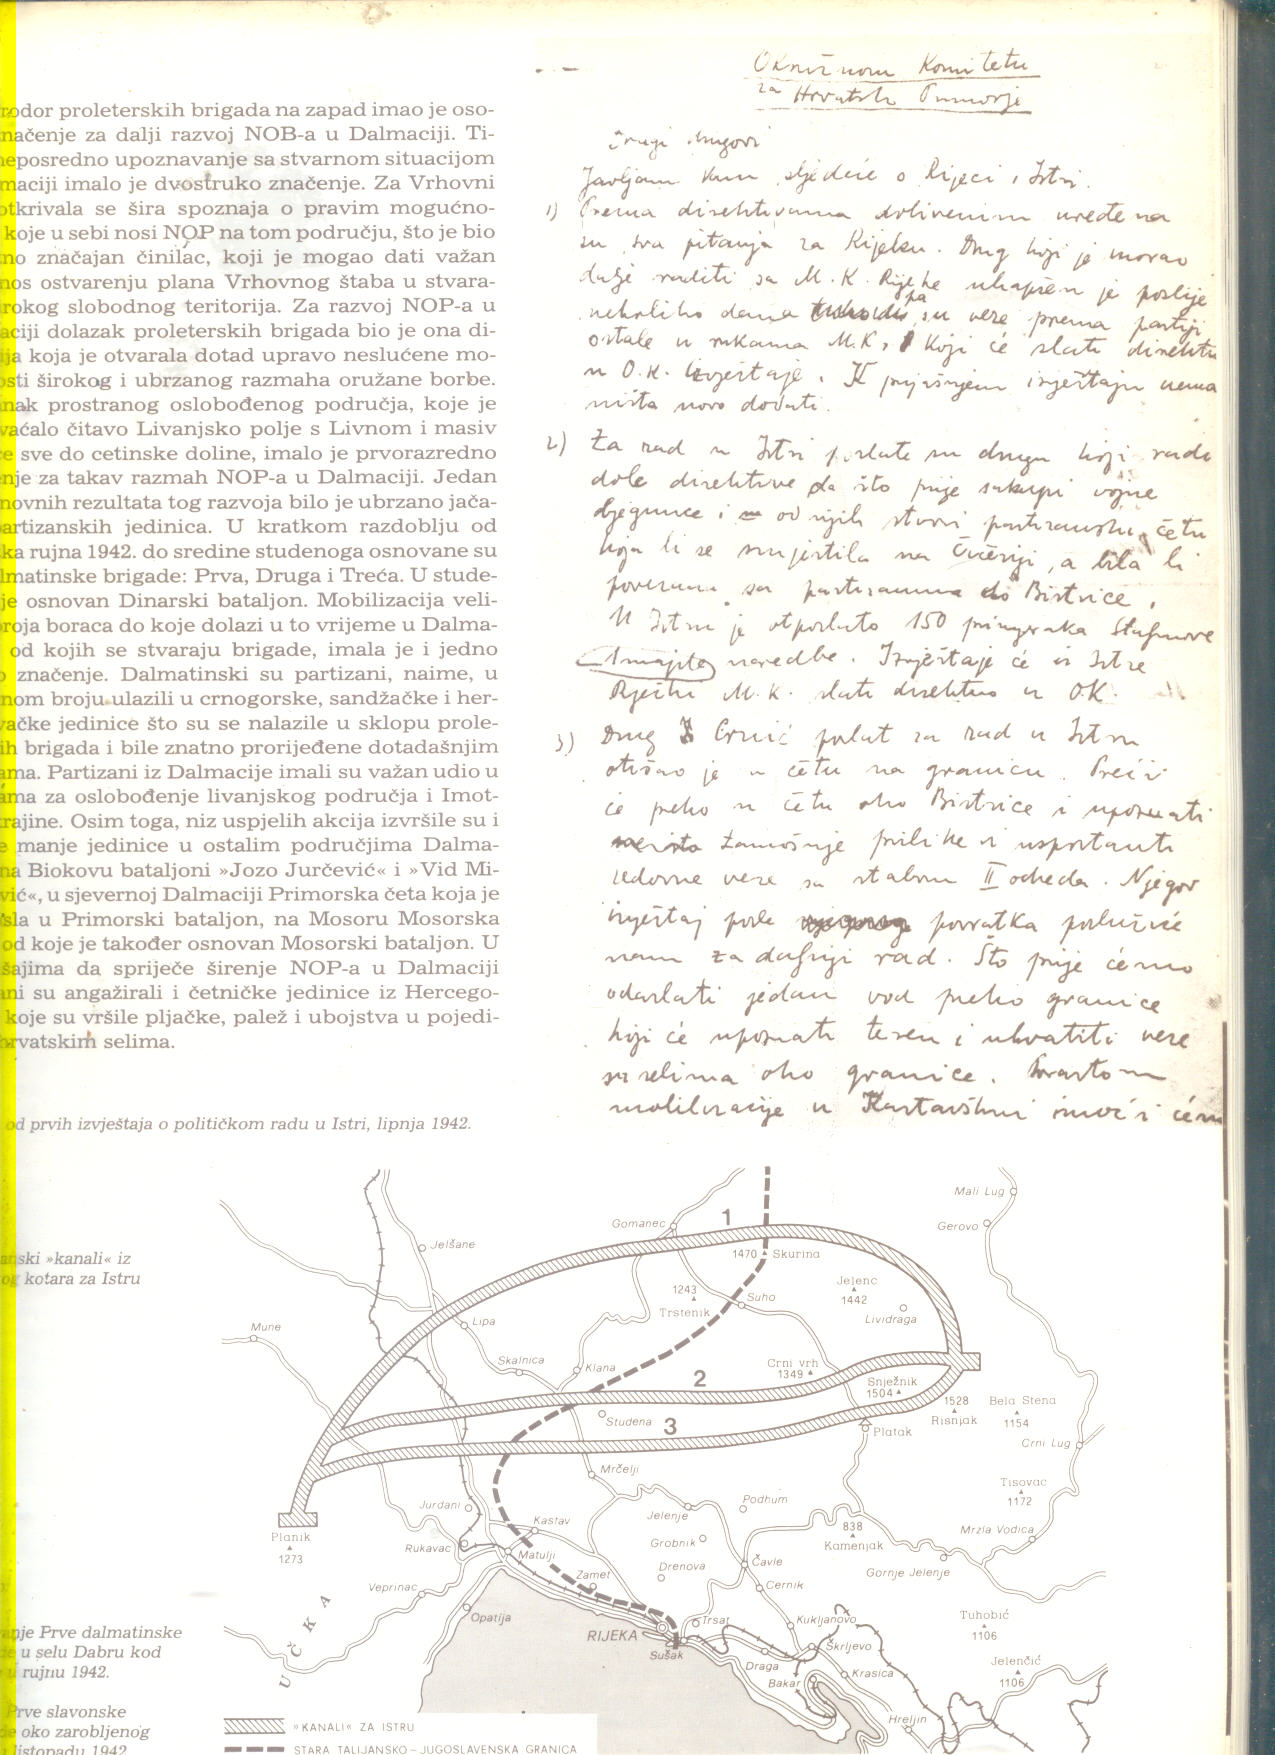 rodor proleterskih brigada na zapad imao je oso-
načenje za dalji razvoj NOB-a u Dalmaciji. Ti-
neposredno upoznavanje sa stvarnom situacijom
maciji imalo je dvostruko značenje. Za Vrhovni
otkrivala se šira spoznaja o pravim mogućno-
koje u sebi nosi NOP na tom području, što je bio
no značajan činilac, koji je mogao dati važan
nos ostvarenju plana Vrhovnog štaba u stvara-
rokog slobodnog teritorija. Za razvoj NOP-a u
aciji dolazak proleterskih brigada bio je ona di-
ija koja je otvarala dotad upravo neslućene mo-
osti širokog i ubrzanog razmaha oružane borbe.
nak prostranog oslobođenog područja, koje je
vaćalo čitavo Livanjsko polje s Livnom i masiv
e sve do cetinske doline, imalo je prvorazredno
nje za takav razmah NOP-a u Dalmaciji. Jedan
novnih rezultata tog razvoja bilo je ubrzano jača-
artizanskih jedinica. U kratkom razdoblju od
ka rujna 1942. do sredine studenoga osnovane su
lmatinske brigade: Prva, Druga i Treća. U stude-
je osnovan Dinarski bataljon. Mobilizacija veli-
roja boraca do koje dolazi u to vrijeme u Dalma-
od kojih se stvaraju brigade, imala je i jedno
značenje. Dalmatinski su partizani, naime, u
nom broju ulazili u crnogorske, sandžačke i her-
vačke jedinice što su se nalazile u sklopu prole-
ih brigada i bile znatno prorijeđene dotadašnjim
ama. Partizani iz Dalmacije imali su važan udio u
ama za oslobođenje livanjskog područja i Imot-
rajine. Osim toga, niz uspjelih akcija izvršile su i
e manje jedinice u ostalim područjima Dalma-
na Biokovu bataljoni »Jozo Jurčević« i »Vid Mi-
vić«, u sjevernoj Dalmaciji Primorska četa koja je
sla u Primorski bataljon, na Mosoru Mosorska
od koje je također osnovan Mosorski bataljon. U
šajima da spriječe širenje NOP-a u Dalmaciji
ani su angažirali i četničke jedinice iz Hercego-
koje su vršile pljačke, palež i ubojstva u pojedi-
hrvatskim selima.
od prvih izvještaja o političkom radu u Istri, lipnja 1942.
Okružnom Komitetu
za Hrvatsko Primorje
Dragi drugovi
Javljam Vam sljedeće o Rijeci i Istri.
1) Prema direktivama dobivenim uređena
su sva pitanja za Rijeku. Drug koji je morao
dalje raditi sa M.K. Rijeke uhapšen je poslije
nekoliko dana pa su veze prema partiji
ostale u rukama M.K. koji će slati direktno
u O.K. izvještaje. K prijašnjem izvještaju nema
ništa novo dodati.
2) Za rad u Istri poslate su drugu koji radi
dole direktive da što prije sakupi vojne
bjegunce i od njih stvori partizansku četu
koja bi se smjestila na Ćićeriji, a bila bi
povezana sa partizanima do Bistrice.
U Istru je otposlato 150 primjeraka Staljinove
1 majske naredbe. Izvještaje će iz Istre
Rječki M.K. slati direktno u O.K.
3) Drug Crnić poslat za rad u Istru
otišao je u četu na granicu. Preći
će preko u četu oko Bistrice i upoznati
tamošnje prilike i uspostaviti
redovne veze sa štabom II odreda. Njegov
izvještaj posle povratka poslužiće
nam za daljnji rad. Što prije ćemo
odaslati jedan vod preko granice
koji će upoznati teren i uhvatiti veze
sa selima oko granice.
mobilizacije u Kastavštini ćemo
anski »kanali« iz
og kotara za Istru
anje Prve dalmatinske
de u selu Dabru kod
u rujnu 1942.
Prve slavonske
de oko zarobljenog
u listopadu 1942.
Mali Lug
Gomanec
1
Gerovo
Jelšane
1470 Skurina
1243
Trstenik
Suho
Jelenc
1442
Lividraga
Lipa
Mune
Skalnica
Klana
Crni vrh
1349
2
Snježnik
1504
1528
Risnjak
Bela Stena
1154
Studena
3
Platak
Crni Lug
Mrčelji
Tisovac
1172
Jurdani
Jelenje
Podhum
Kastav
838
Kamenjak
Mrzla Vodica
Planik
1273
Rukavac
Matulji
Grobnik
Drenova
Čavle
Gornje Jelenje
Zamet
Cernik
Veprinac
UČKA
Opatija
Trsat
Kukljanovo
Tuhobić
1106
RIJEKA
Sušak
Škrljevo
Draga
Krasica
Jelenčić
1106
Bakar
Hreljin
»KANALI« ZA ISTRU
STARA TALIJANSKO-JUGOSLAVENSKA GRANICA